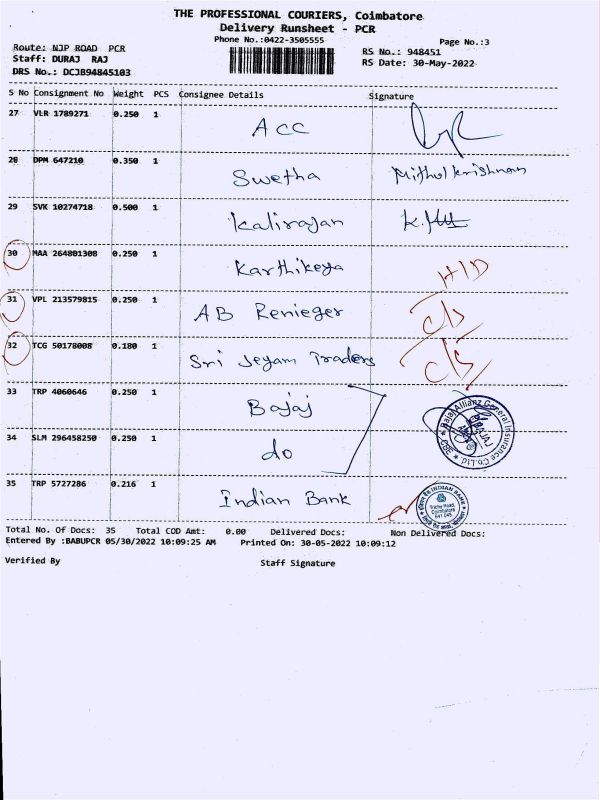 THE PROFESSIONAL COURIERS, Coimbatore
Delivery Runsheet - PCR
Phone No.:0422-3505555
Page No.:3
Route: NJP ROAD PCR
RS No.: 948451
Staff: DURAJ RAJ
RS Date: 30-May-2022
DRS No.: DCJB94845103
S No Consignment No Weight PCS Consignee Details Signature
27 VLR 1789271 0.250 1 ACC
28 DPM 647210 0.350 1 Swetha Mithul Krishnan
29 SVK 10274718 0.500 1 Kalirajan
30 MAA 264801308 0.250 1 Karthikeya H/D
31 VPL 213579815 0.250 1 AB Renieger C/S
32 TCG 50178008 0.180 1 Sri Jeyam Traders C/S
33 TRP 4060646 0.250 1 Bajaj
Bajaj Allianz General Insurance Co.Ltd
CBE
34 SLM 296458250 0.250 1 do
35 TRP 5727286 0.216 1 Indian Bank
INDIAN BANK
Trichy Road,
Coimbatore
Total No. Of Docs: 35 Total COD Amt: 0.00 Delivered Docs: Non Delivered Docs:
Entered By :BABUPCR 05/30/2022 10:09:25 AM Printed On: 30-05-2022 10:09:12
Verified By Staff Signature